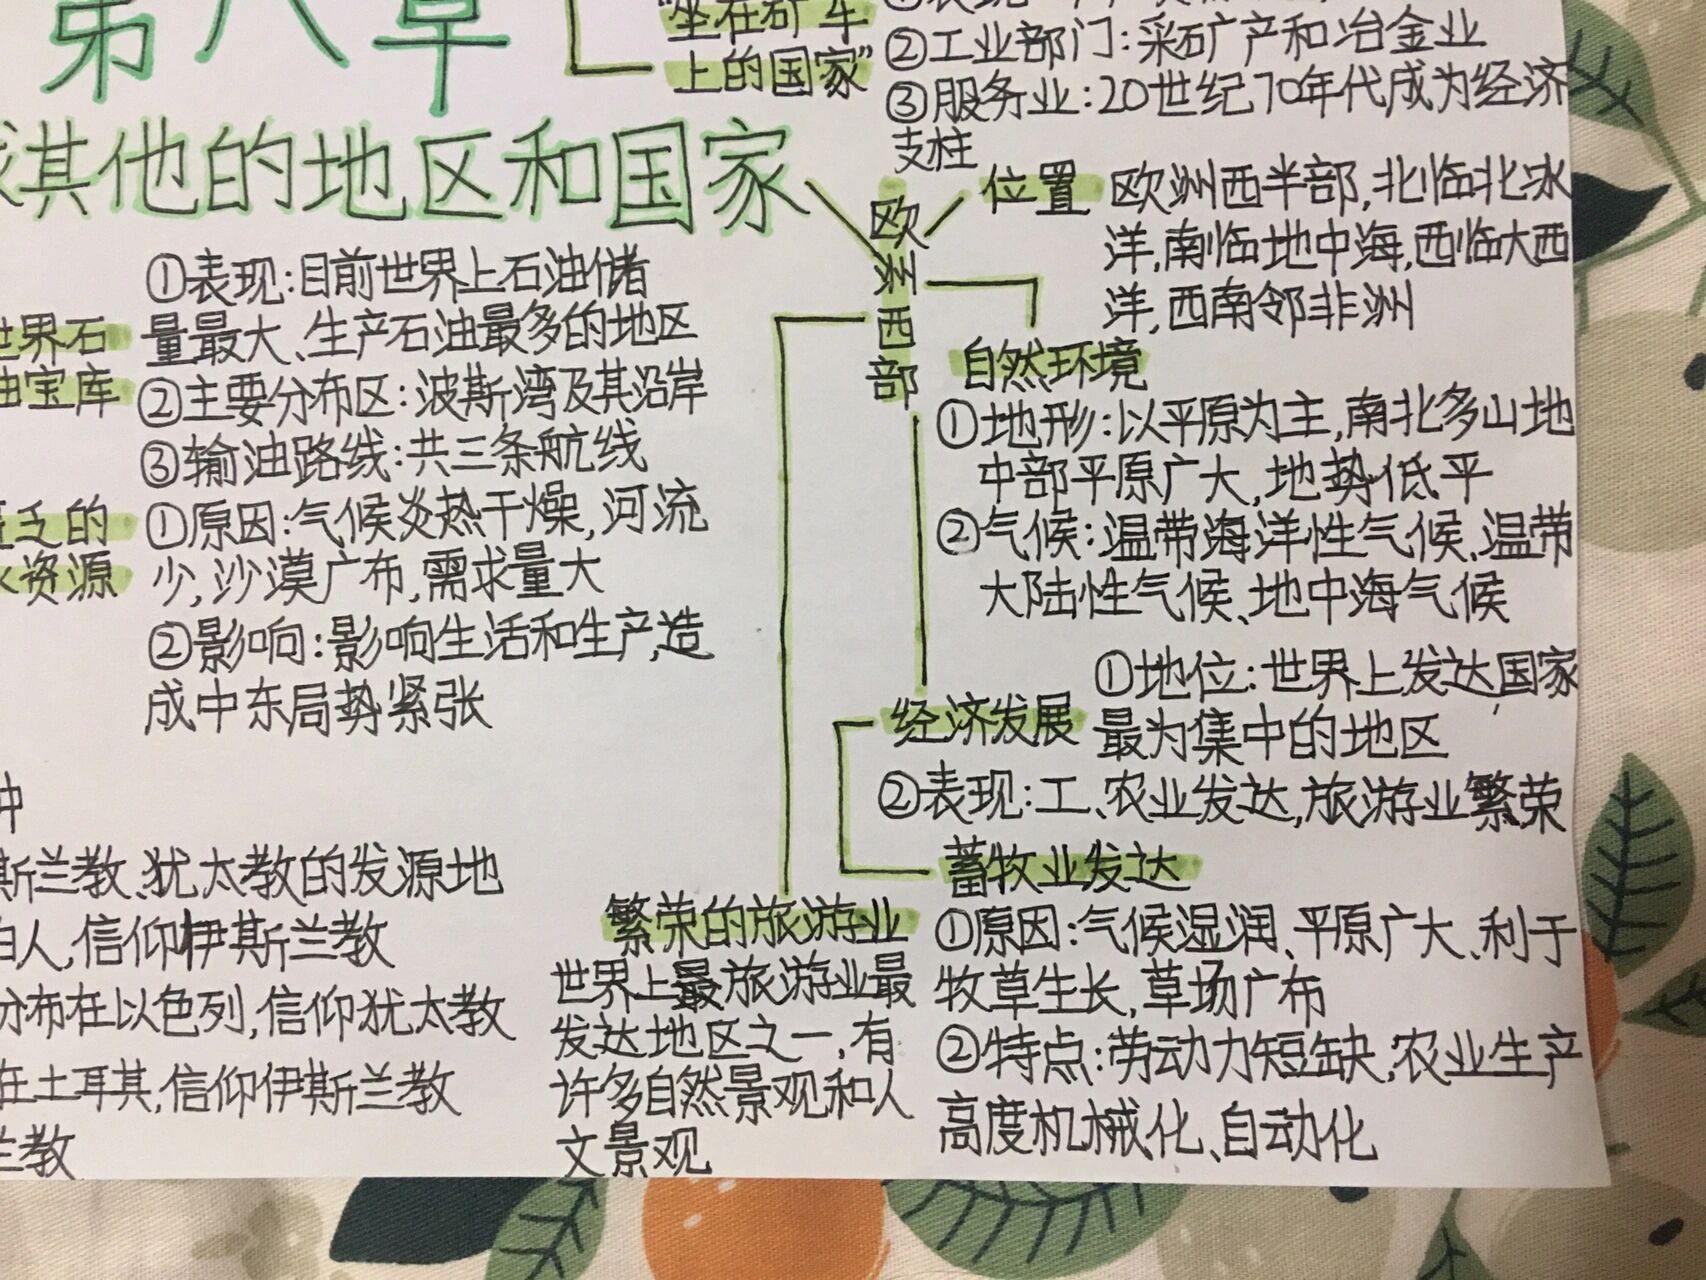 第八章
其他的地区和国家
"坐在矿车
上的国家"
②工业部门:采矿产和冶金业
③服务业:20世纪70年代成为经济
支柱
欧洲西部
位置
欧洲西半部,北临北冰
洋,南临地中海,西临大西
洋,西南邻非洲
自然环境
①地形:以平原为主,南北多山地
中部平原广大,地势低平
②气候:温带海洋性气候、温带
大陆性气候、地中海气候
经济发展
①地位:世界上发达国家
最为集中的地区
②表现:工、农业发达,旅游业繁荣
畜牧业发达
①原因:气候湿润、平原广大、利于
牧草生长,草场广布
②特点:劳动力短缺,农业生产
高度机械化、自动化
繁荣的旅游业
世界上最旅游业最
发达地区之一,有
许多自然景观和人
文景观
世界石
油宝库
①表现:目前世界上石油储
量最大、生产石油最多的地区
②主要分布区:波斯湾及其沿岸
③输油路线:共三条航线
匮乏的
水资源
①原因:气候炎热干燥,河流
少,沙漠广布,需求量大
②影响:影响生活和生产,造
成中东局势紧张
斯兰教、犹太教的发源地
伯人,信仰伊斯兰教
分布在以色列,信仰犹太教
在土耳其,信仰伊斯兰教
兰教